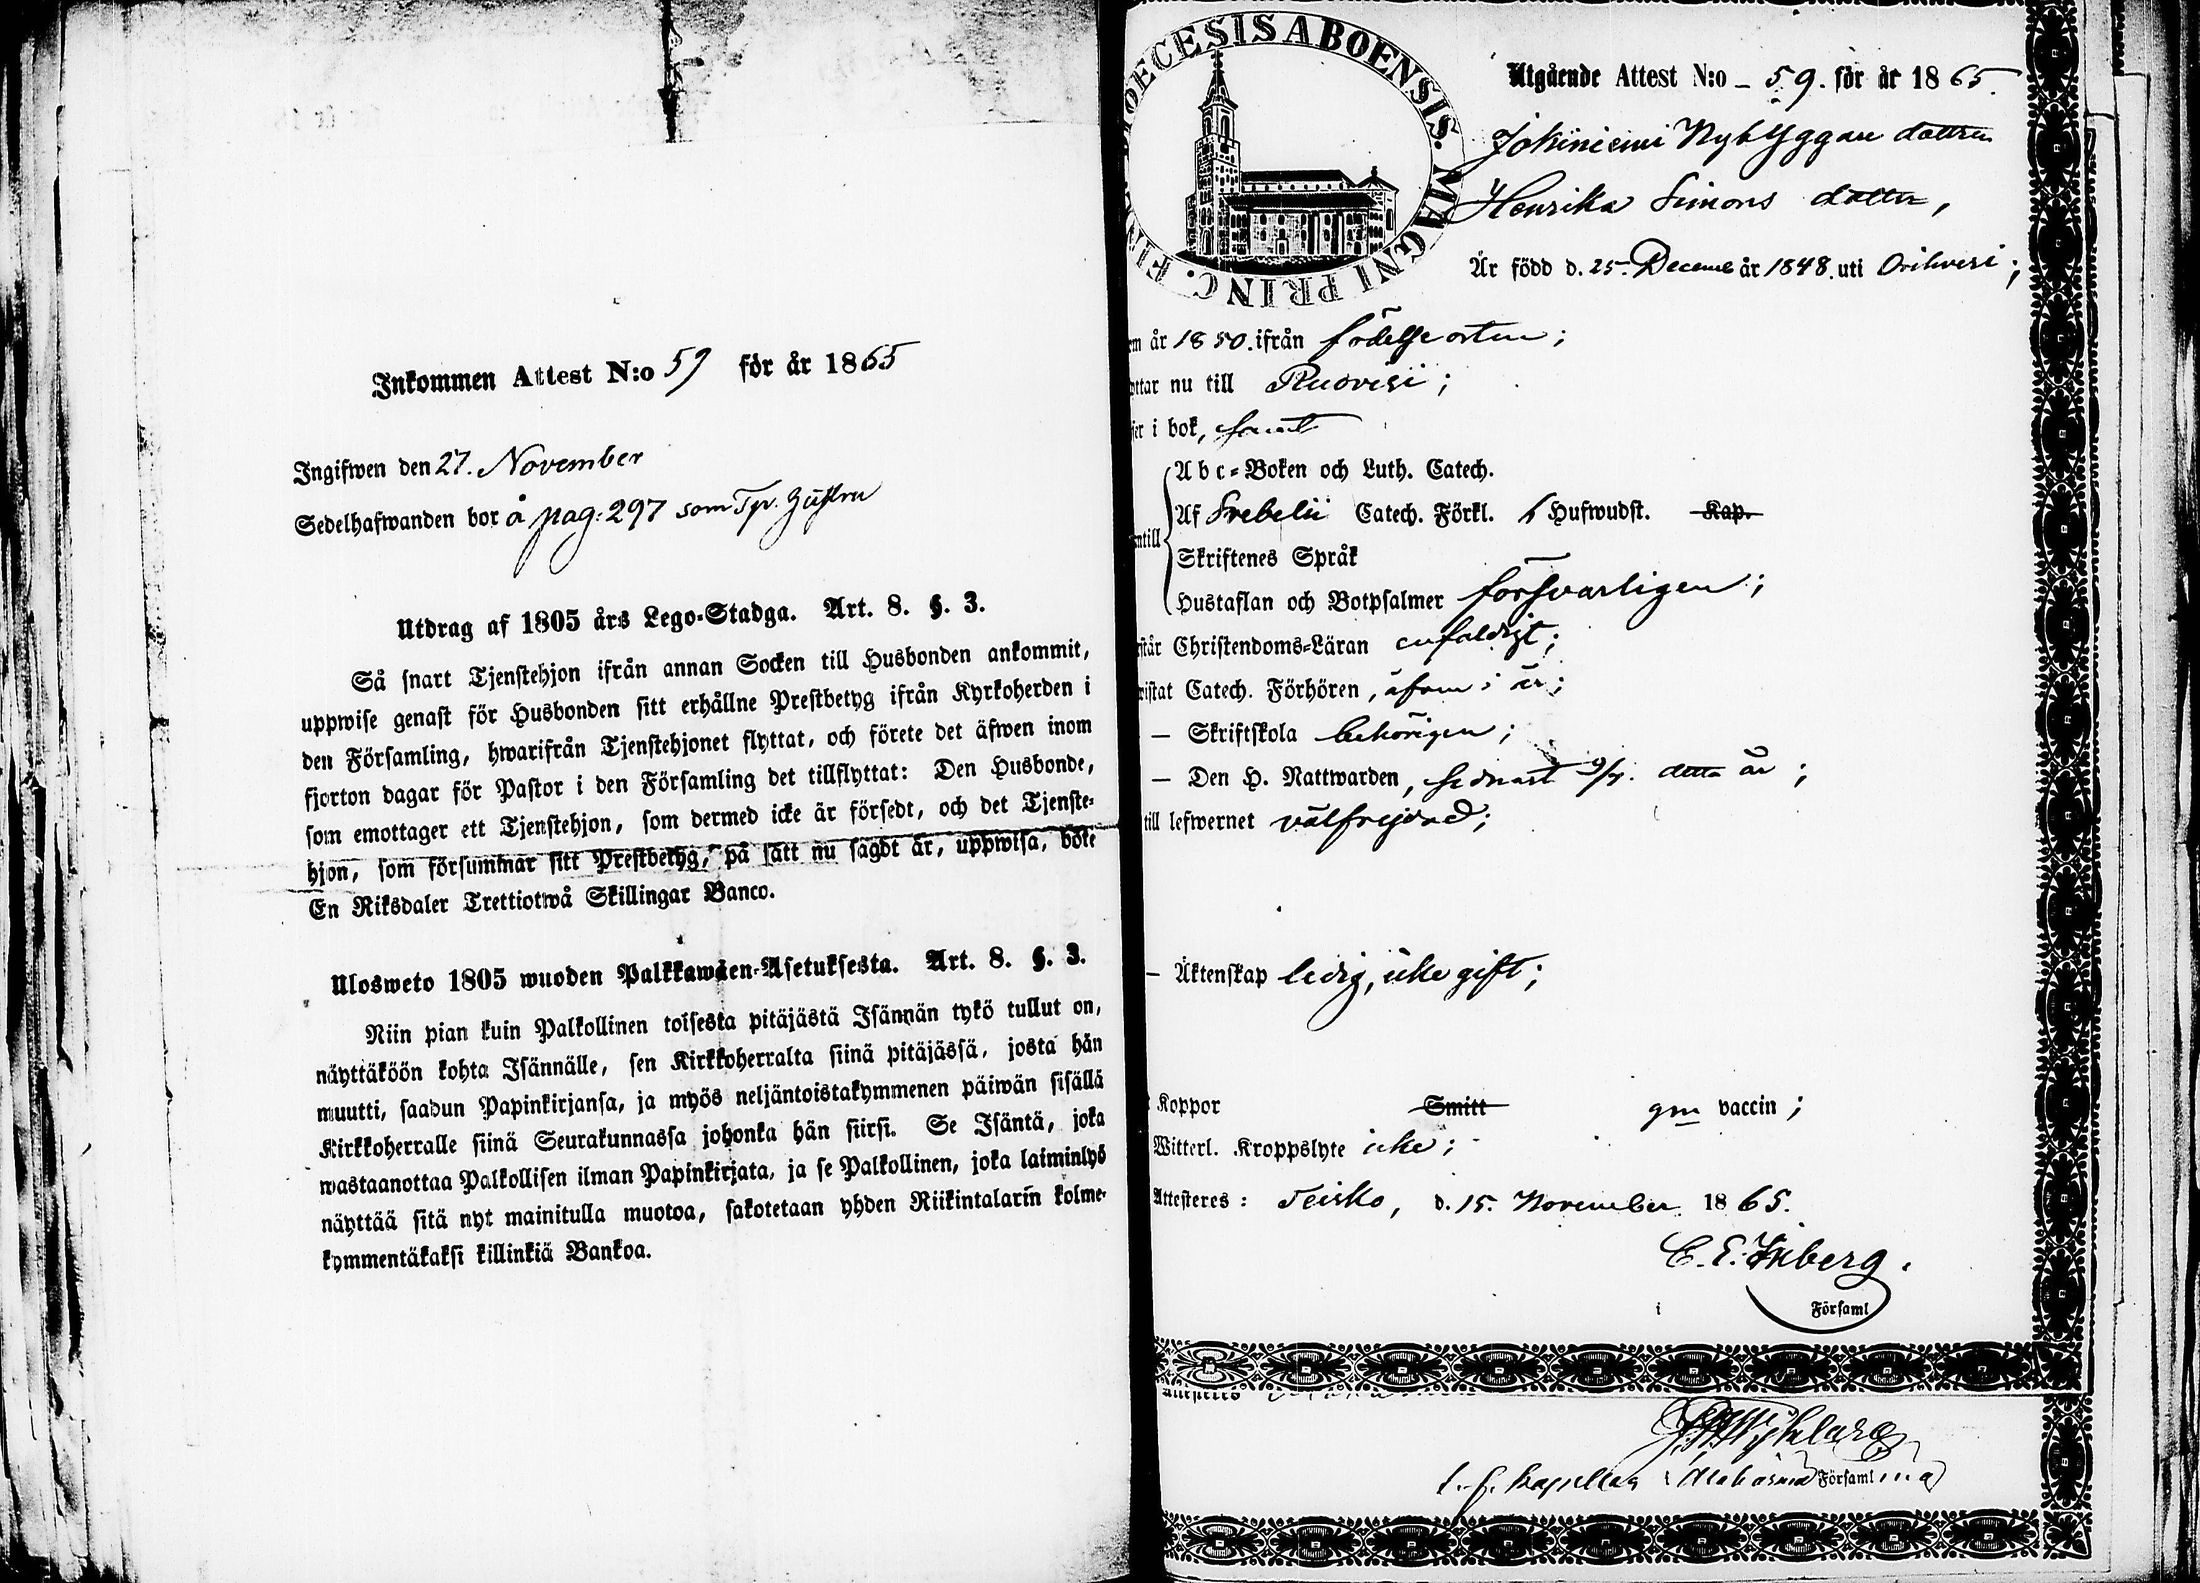 Inkommen Attest N:o 59 för år 1865
Ingifwen den 27. November
Sedelhafwanden bor å pag: 297 som
Utdrag af 1805 års Lego-Stadga. Art. 8. §. 3.
Så snart Tjenstehjon ifrån annan Socken till Husbonden ankommit,
uppwise genast för Husbonden sitt erhållne Prestbetyg ifrån Kyrkoherden i
den Församling, hwarifrån Tjenstehjonet flyttat, och förete det äfwen inom
fjorton dagar för Pastor i den Församling det tillflyttat: Den Husbonde,
som emottager ett Tjenstehjon, som dermed icke är försedt, och det Tjenste-
hjon, som försummar sitt Prestbetyg, på sätt nu sagdt är, uppwisa, böte
En Riksdaler Trettiotwå Skillingar Banco.
Ulosweto 1805 wuoden Palkkawäen-Asetuksesta. Art. 8. §. 3.
Niin pian kuin Palkollinen toisesta pitäjästä Isännän tykö tullut on,
näyttäköön kohta Isännälle, sen Kirkkoherralta siinä pitäjässä, josta hän
muutti, saadun Papinkirjansa, ja myös neljäntoistakymmenen päiwän sisällä
Kirkkoherralle siinä Seurakunnassa johonka hän siirsi. Se Isäntä, joka
wastaanottaa Palkollisen ilman Papinkirjata, ja se Palkollinen, joka laiminlyö
näyttää sitä nyt mainitulla muotoa, sakotetaan yhden Riikintalarin kolme-
kymmentäkaksi killinkiä Bankoa.
DIOECESIS ABOENSIS. MAGNI PRINC. FIN
Utgående Attest N:o 59. för år 1865.
Jokiniemi Nybyggare dottren
Henrika Simons dotter,
Är född d. 25. Decemb år 1848. uti Orihvesi;
år 1850. ifrån födelseorten;
nu till Ruovesi;
i bok, samt
Abc-Boken och Luth. Catech.
Af Svebelii Catech. Förkl. 6 Hufwudst. Kap.
Skriftenes Språk
Hustaflan och Botpsalmer försvarligen;
Christendoms-Läran enfaldigt;
Catech. Förhören, äfven i år;
— Skriftskola behörigen;
— Den H. Nattwarden, senast 9/7. detta år;
till lefwernet välfrejdad;
— Äktenskap ledig, icke gift;
Koppor Smitt gm vaccin;
Witterl. Kroppslyte icke;
Attesteres: Teisko, d. 15. November 1865.
C. E. Inberg.
i Församl
Attesteres
i Församl